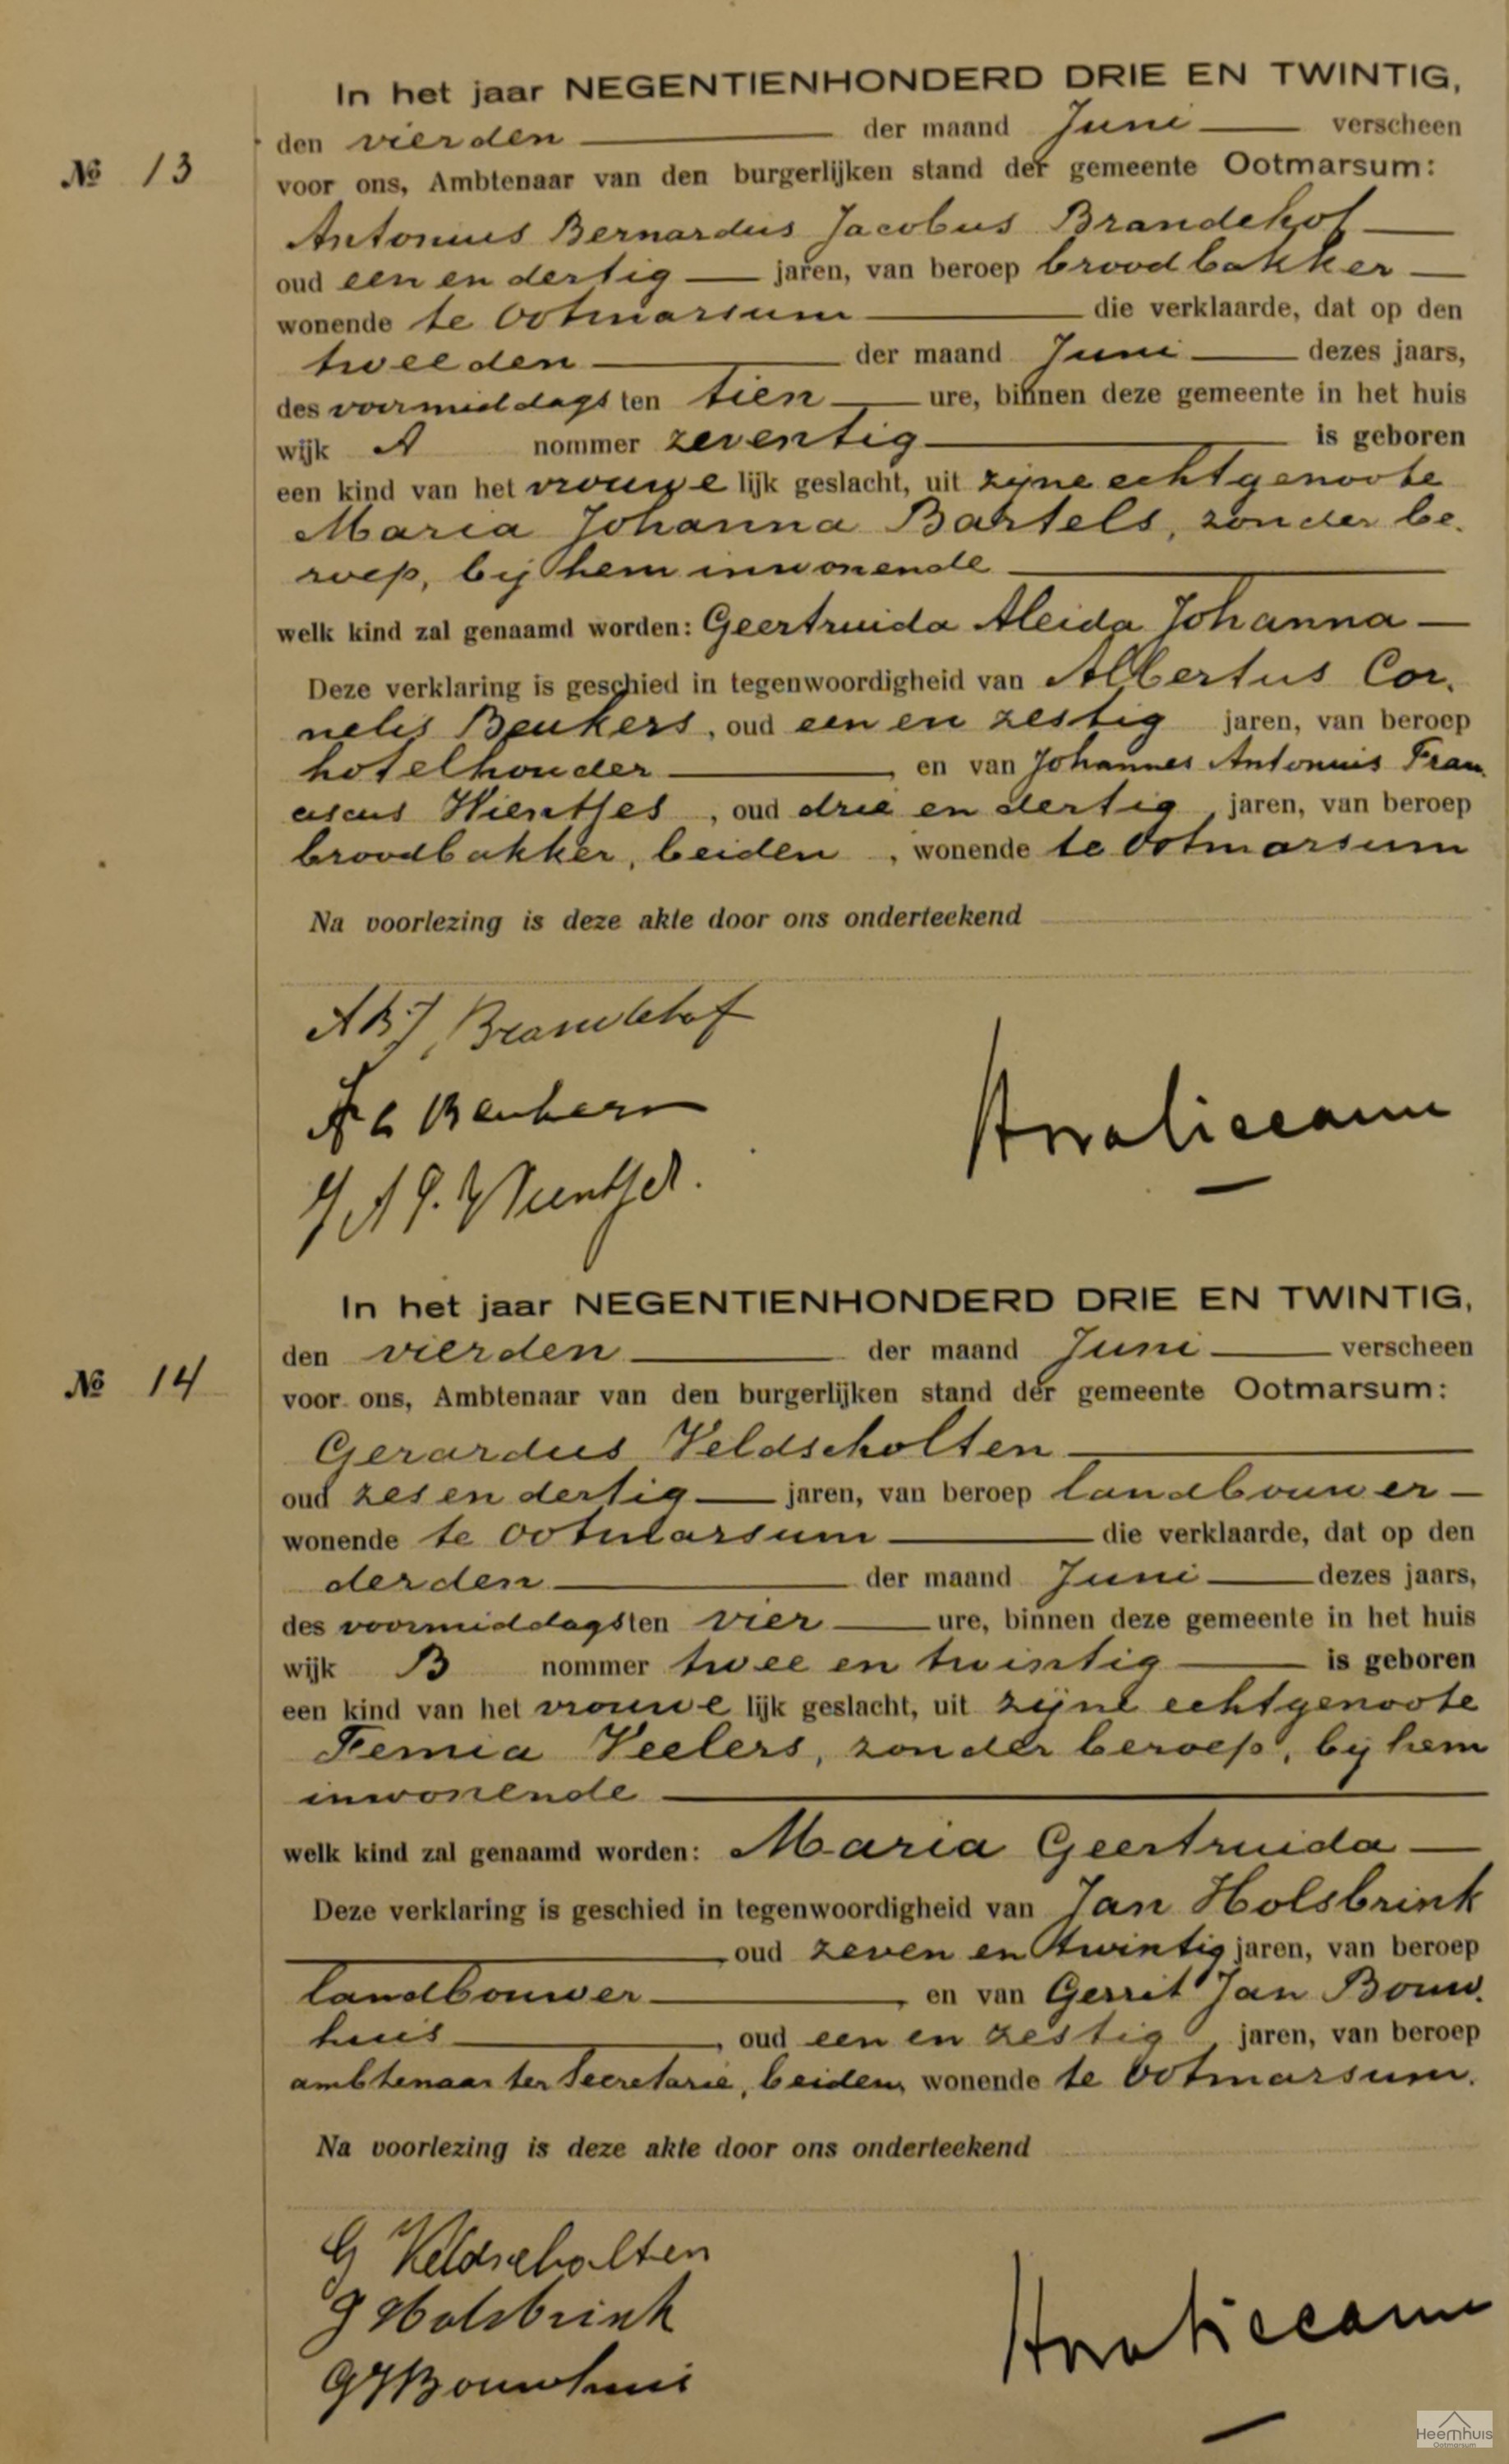 In het jaar NEGENTIENHONDERD DRIE EN TWINTIG,
den vierden der maand Juni verscheen
№ 13
voor ons, Ambtenaar van den burgerlijken stand der gemeente Ootmarsum:
Antonius Bernardus Jacobus Brandehof
oud een en dertig jaren, van beroep broodbakker
wonende te Ootmarsum die verklaarde, dat op den
tweeden der maand Juni dezes jaars,
des voormiddags ten tien ure, binnen deze gemeente in het huis
wijk A nommer zeventig is geboren
een kind van het vrouwelijk geslacht, uit zijne echtgenoote
Maria Johanna Bartels, zonder be-
roep, bij hem inwonende
welk kind zal genaamd worden: Geertruida Aleida Johanna
Deze verklaring is geschied in tegenwoordigheid van Albertus Cor-
nelis Beukers, oud een en zestig jaren, van beroep
hotelhouder, en van Johannes Antonius Fran-
ciscus Wientjes, oud drie en dertig, jaren, van beroep
broodbakker, beiden, wonende te Ootmarsum
Na voorlezing is deze akte door ons onderteekend
A B J, Brandehof
A C Beukers
J A F. Wientjes.
In het jaar NEGENTIENHONDERD DRIE EN TWINTIG,
den vierden der maand Juni verscheen
№ 14
voor ons, Ambtenaar van den burgerlijken stand der gemeente Ootmarsum:
Gerardus Veldscholten
oud zes en dertig jaren, van beroep landbouwer
wonende te Ootmarsum die verklaarde, dat op den
derden der maand Juni dezes jaars,
des voormiddags ten vier ure, binnen deze gemeente in het huis
wijk B nommer twee en twintig is geboren
een kind van het vrouwelijk geslacht, uit zijne echtgenoote
Femia Veelers, zonder beroep, bij hem
inwonende
welk kind zal genaamd worden: Maria Geertruida
Deze verklaring is geschied in tegenwoordigheid van Jan Holsbrink
, oud zeven en twintig jaren, van beroep
landbouwer, en van Gerrit Jan Bouw-
huis, oud een en zestig, jaren, van beroep
ambtenaar ter Secretarie, beiden, wonende te Ootmarsum.
Na voorlezing is deze akte door ons onderteekend
G Veldscholten
J Holsbrink
GJ Bouwhuis
Heemhuis
Ootmarsum